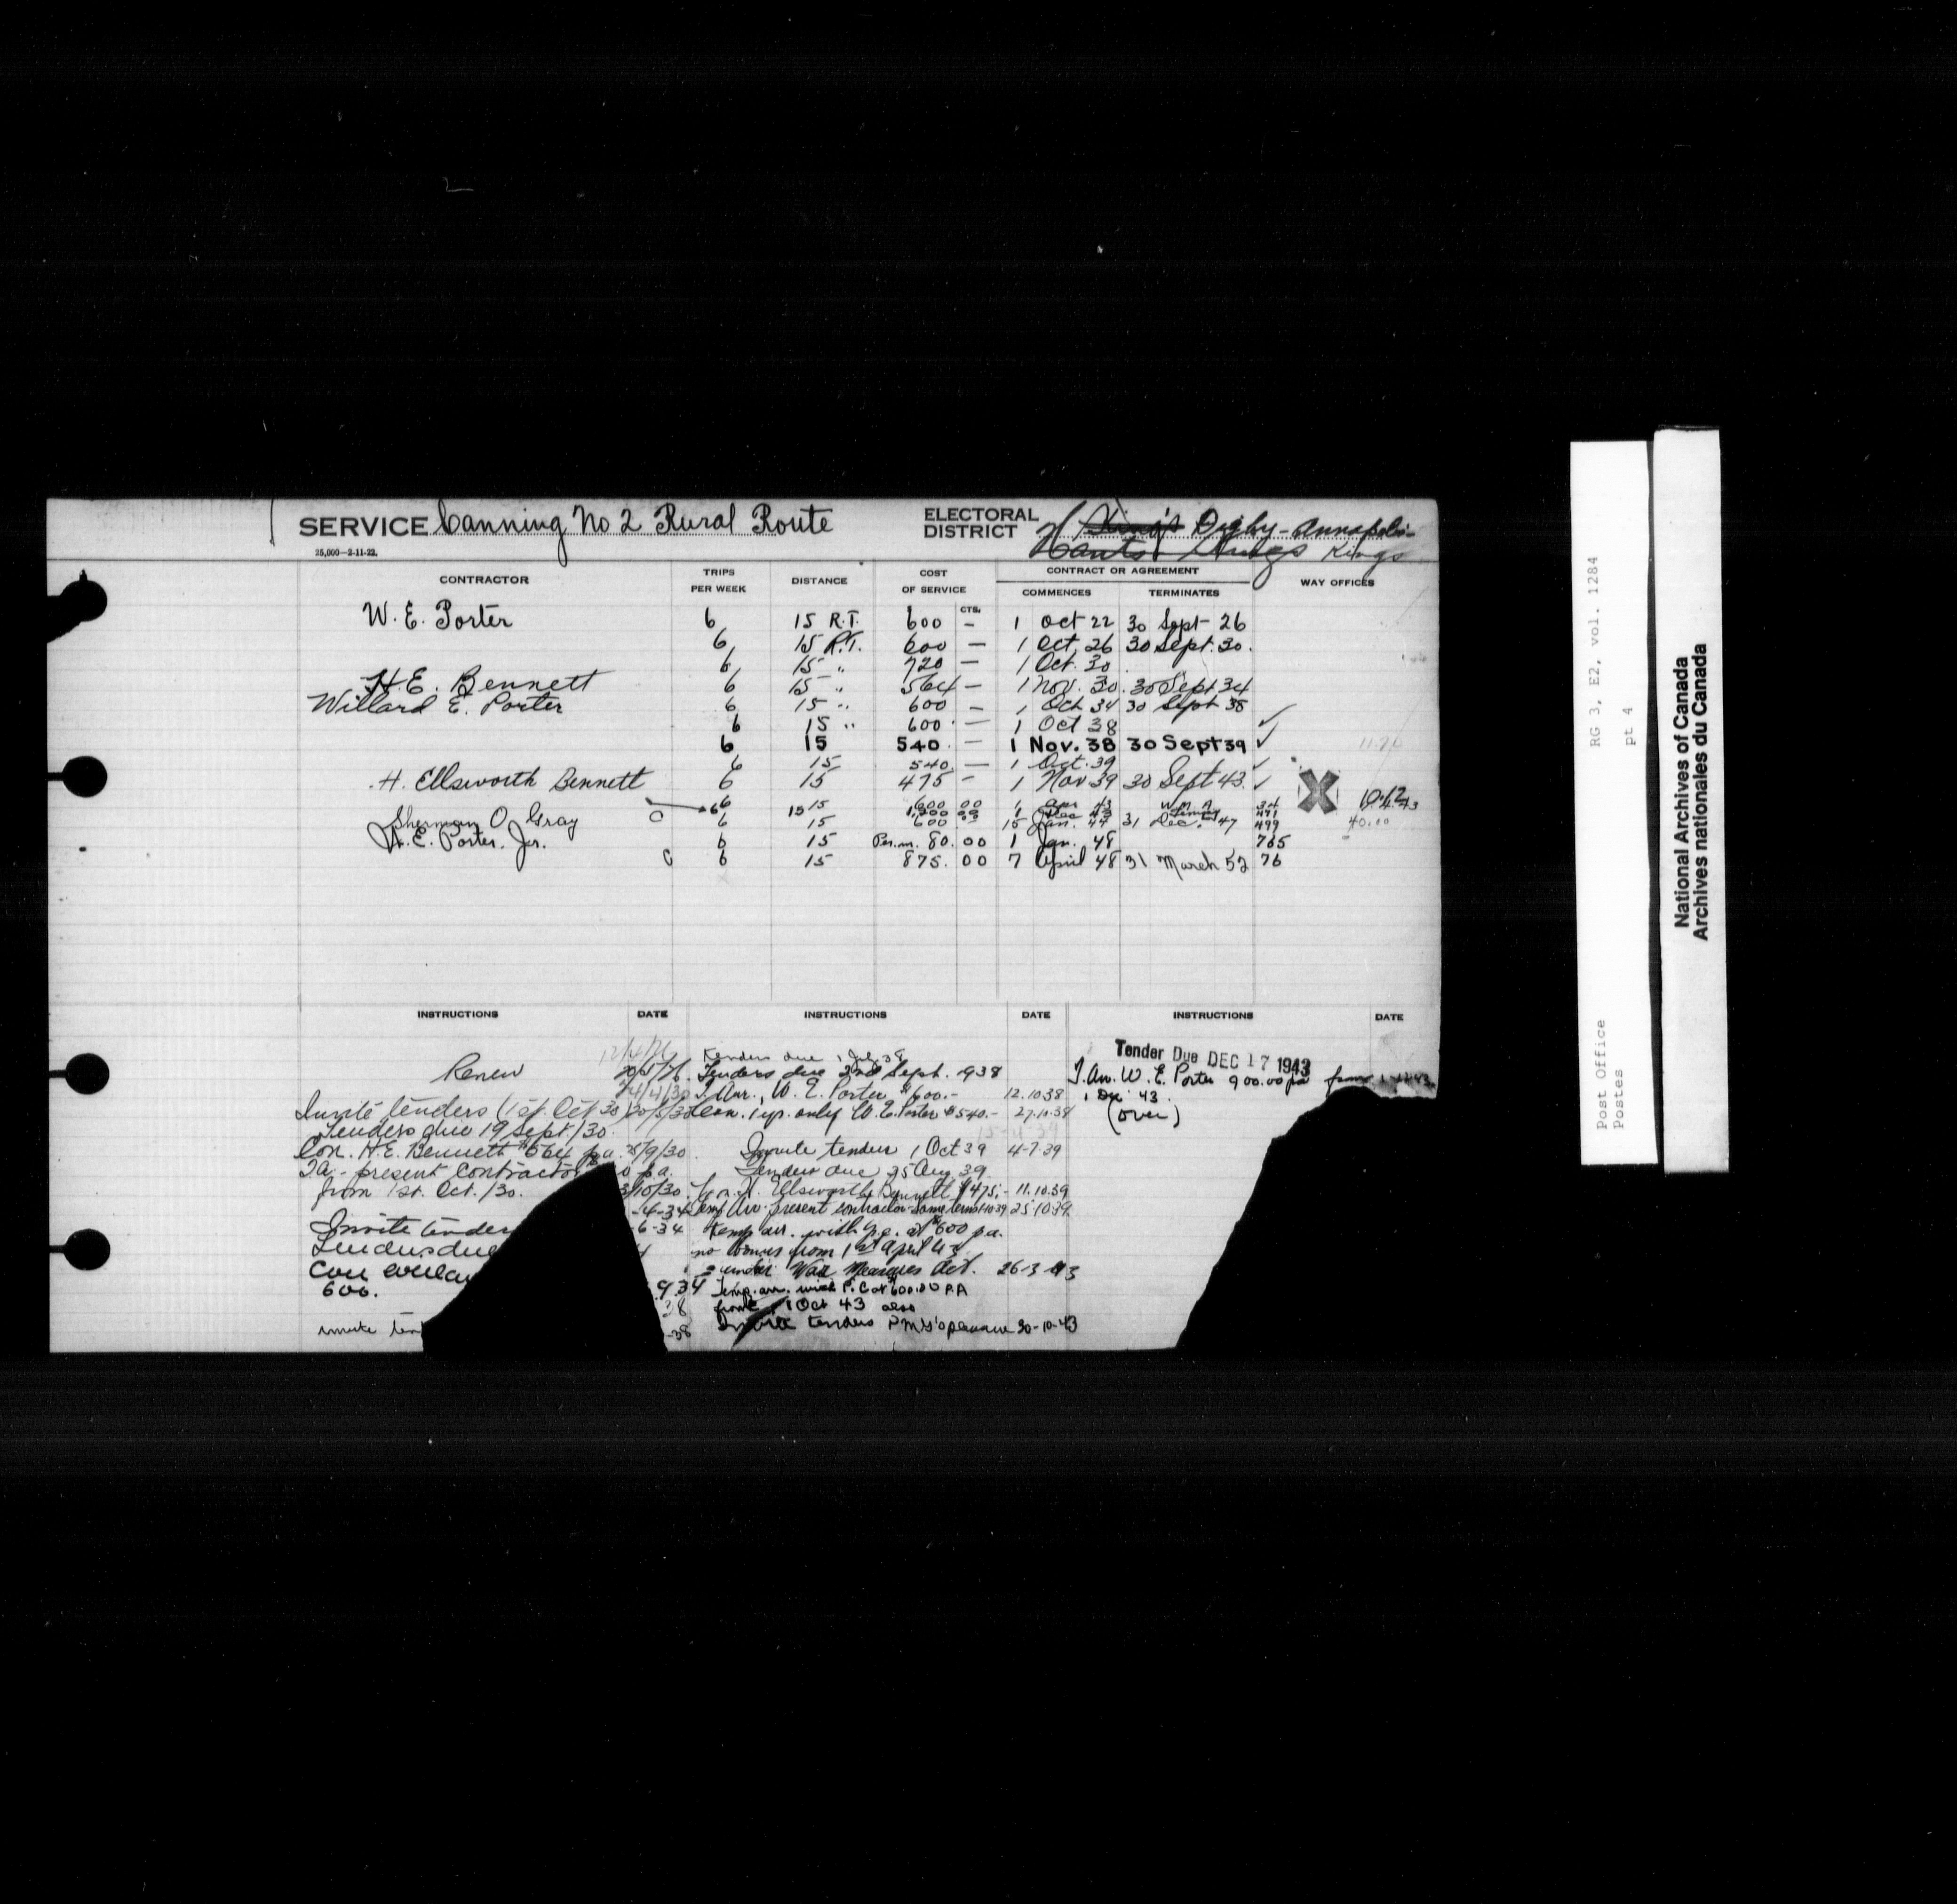 SERVICE Canning No 2 Rural Route
25,000—2-11-22.
ELECTORAL DISTRICT King's Digby-Annapolis-
Hants Kings Kings
CONTRACTOR TRIPS PER WEEK DISTANCE COST OF SERVICE CTS. CONTRACT OR AGREEMENT COMMENCES TERMINATES WAY OFFICES
W. E. Porter 6 15 R.T. 600 — 1 Oct 22 30 Sept 26
6 15 R.T. 600 — 1 Oct. 26 30 Sept. 30.
6 15 " 720 — 1 Oct. 30
H. E. Bennett 6 15 " 564 — 1 Nov. 30. 30 Sept 34
Willard E. Porter 6 15 " 600 — 1 Oct 34 30 Sept 38
6 15 " 600 — 1 Oct 38 ✓
6 15 540 — 1 Nov. 38 30 Sept 39 ✓
6 15 540 — 1 Oct. 39 ✓
H. Ellsworth Bennett 6 15 475 — 1 Nov 39 30 Sept 43. ✓
6 15 600 00 1 Apr 43 W.M.A. 34
6 15 00 1 Dec 43 471
Sherman O. Gray 6 15 00 15 Jan. 44 31 Dec. 47 499
40.00
W. E. Porter. Jr. 6 15 Per.m. 80. 00 1 Jan. 48 765
6 15 875. 00 7 April 48 31 March 52 76
INSTRUCTIONS DATE INSTRUCTIONS DATE INSTRUCTIONS DATE
Renew
Invite tenders (1st Oct 30
Tenders due 19 Sept/30.
Con. H.E. Bennett $564 p.a. 25/9/30
T.a. - present contractor p.a.
from 1st. Oct./30. /10/30
-4-34
Invite tender -6-34
Tenders due
600. 934
38
invite ten -38
Tenders due 1 July 38
Tenders due 2nd Sept. 938
T. Arr., W. E. Porter $600.- 12.10.38
Con. 1 yr. only W. E. Porter $540.- 27.10.38
Invite tender 1 Oct 39 4-7-39
Tenders due 25 Aug 39.
Con. H. Ellsworth Bennett $475.- 11.10.39
Temp Arr. present contractor same terms 25.10.39
Temp arr. with p.c. at $600 p.a.
no bonus from 1st April 43
under War Measures Act. 26-3-43
Temp. arr. with P.C. at 600.00 P.A
from 1 Oct 43 also
Invite tenders 20-10-43
Tender Due DEC 17 1943
T. Arr. W. E. Porter 900.00 pa from
1 Dec 43.
(over)
RG 3, E2, vol. 1284
pt 4
Post Office
Postes
National Archives of Canada
Archives nationales du Canada